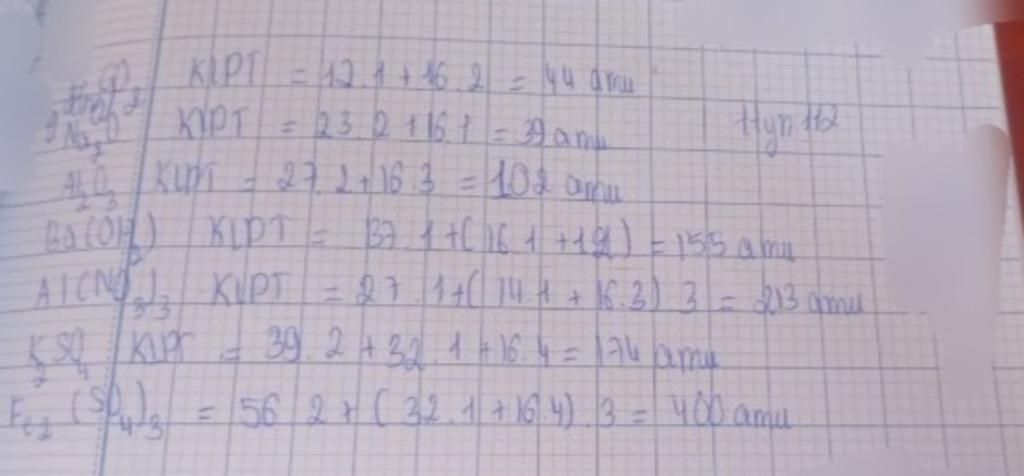 KLPT = 12.1 + 16.2 = 44 amu
Na2O KLPT = 23.2 + 16.1 = 39 amu
Al2O3 KLPT = 27.2 + 16.3 = 102 amu
Ba(OH)2 KLPT = 137.1 + (16.1 + 1.2) = 155 amu
Al(NO3)3 KLPT = 27.1 + (14.1 + 16.3) 3 = 213 amu
K2SO4 KLPT = 39.2 + 32.1 + 16.4 = 174 amu
Fe2(SO4)3 = 56.2 + (32.1 + 16.4).3 = 400 amu